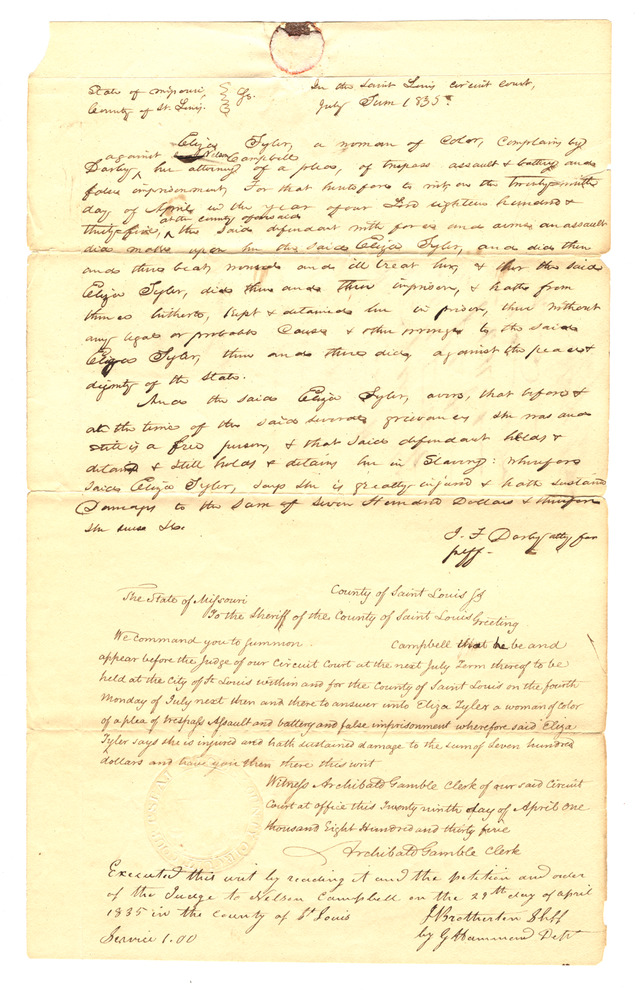 State of Missouri,
County of St. Louis. } Ss. In the Saint Louis Circuit Court,
July Term 1835
Eliza Tyler, a woman of Color, complains by
against Nelson Campbell
Darby her attorney of a plea, of trespass assault & battery and
false imprisonment, For that heretofore to wit, on the twenty ninth
day of April in the year of our Lord eighteen hundred &
at the county aforesaid
thirty five, the said defendant with force and arms an assault
did make upon her the said Eliza Tyler, and did then
and there beat, wound and ill treat her, & her the said
Eliza Tyler, did then and there imprison, & hath from
thence hitherto, kept & detained her in prison, there without
any legal or probable Cause & other wrongs to the said
Eliza Tyler, then and there did, against the peace &
dignity of the State.
And the said Eliza Tyler, avers, that before &
at the time of the said several grievances she was and
still is a free person, & that said defendant holds &
detains & still holds & detains her in Slavery: wherefore
said Eliza Tyler, says she is greatly injured & hath sustained
Damage to the Sum of Seven Hundred Dollars & therefore
she sues &c.
J. F. Darby atty for
plff.
The State of Missouri County of Saint Louis Ss
To the Sheriff of the County of Saint Louis Greeting
We command you to summon Campbell that he be and
appear before the Judge of our Circuit Court at the next July Term thereof to be
held at the City of St Louis within and for the County of Saint Louis on the fourth
Monday of July next then and there to answer unto Eliza Tyler a woman of color
of a plea of trespass Assault and battery and false imprisonment wherefore said Eliza
Tyler says she is injured and hath sustained damage to the sum of Seven hundred
dollars and have you then there this writ
Witness Archibald Gamble Clerk of our said Circuit
Court at office this Twenty ninth day of April One
thousand Eight Hundred and thirty five
Archibald Gamble Clerk
Executed this writ by reading it and the petition and order
of the Judge to Nelson Campbell on the 29th day of April
1835 in the County of St Louis J Brotherton Shff
Service 1.00 by G Hammond Dept